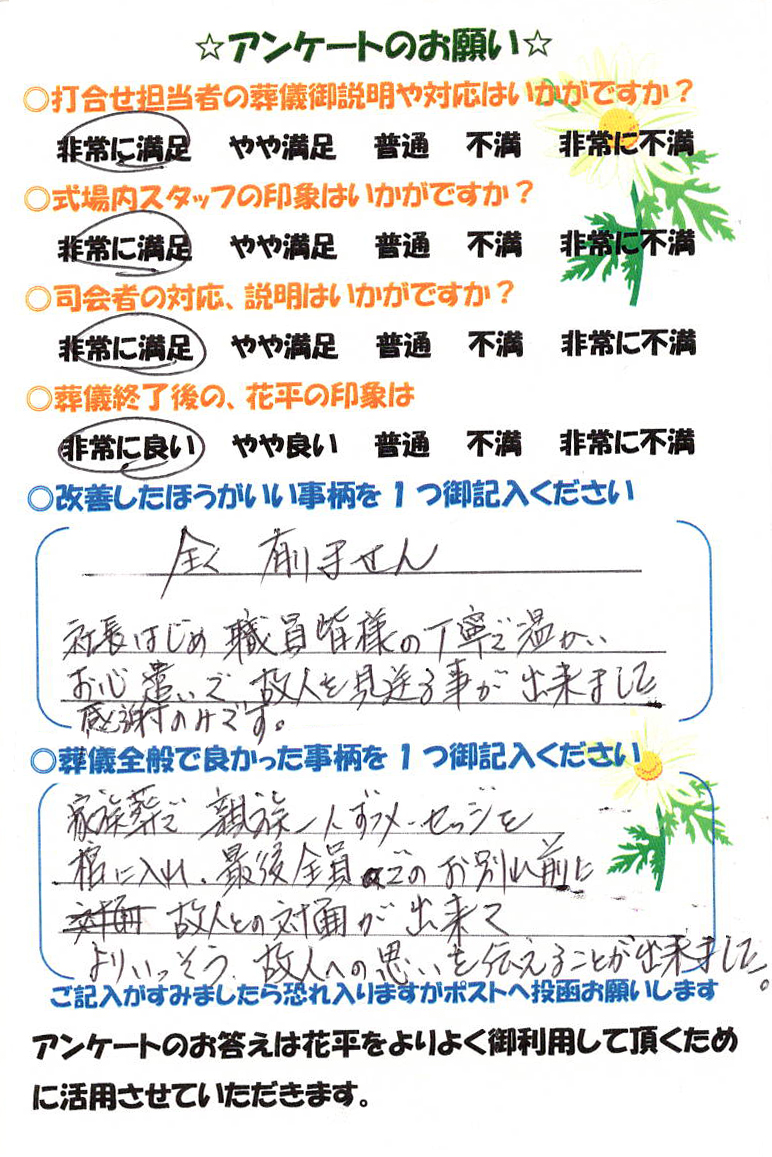 ☆アンケートのお願い☆
○打合せ担当者の葬儀御説明や対応はいかがですか？
非常に満足 やや満足 普通 不満 非常に不満
○式場内スタッフの印象はいかがですか？
非常に満足 やや満足 普通 不満 非常に不満
○司会者の対応、説明はいかがですか？
非常に満足 やや満足 普通 不満 非常に不満
○葬儀終了後の、花平の印象は
非常に良い やや良い 普通 不満 非常に不満
○改善したほうがいい事柄を１つ御記入ください
全く有りません
社長はじめ職員皆様の丁寧で温かい
お心遣いで故人を見送る事が出来ました
感謝のみです。
○葬儀全般で良かった事柄を１つ御記入ください
家族葬で親族一人ずつメッセージを
棺に入れ、最後全員でのお別れ前に
故人との対面が出来て
よりいっそう、故人への思いを伝えることが出来ました。
ご記入がすみましたら恐れ入りますがポストへ投函お願いします
アンケートのお答えは花平をよりよく御利用して頂くため
に活用させていただきます。